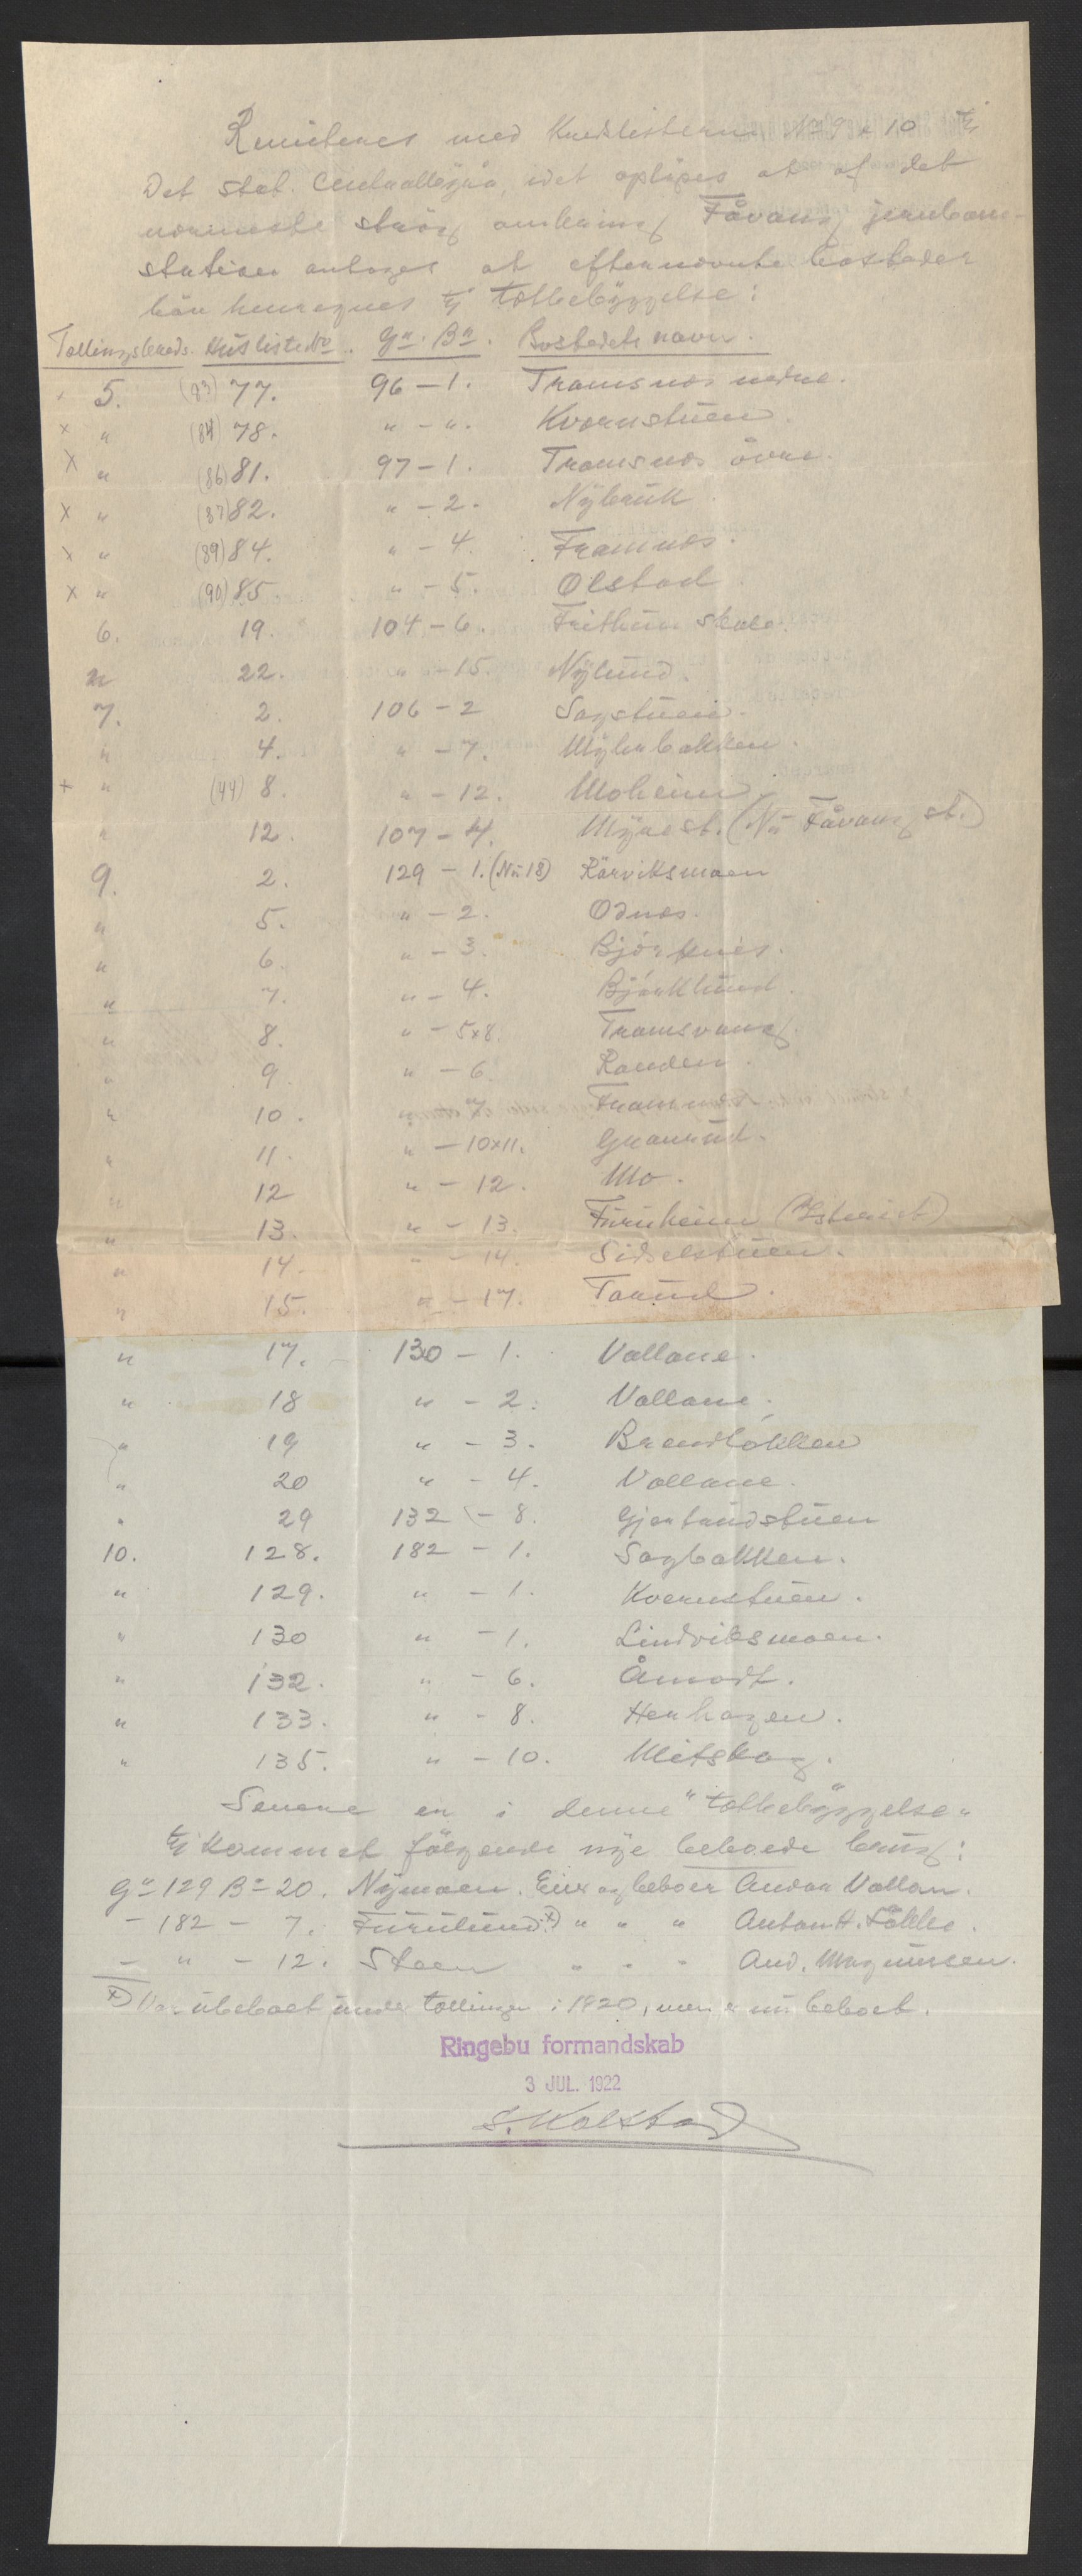 Remitteres med Kredslisterne No 9 & 10 til
Det stat. Centralbyrå, idet oplyses at af det
nærmeste strög omkring Fåvang jernbane-
station antages at efternævnte bosteder
bör henregnes til tætbebyggelse:
Tællingskreds. Husliste No. Gn. Bn. Bostedets navn.
5. (83) 77. 96 - 1. Tromsnes nedre.
x " (84) 78. " - ". Kvernstuen.
x " (86) 81. 97 - 1. Tromsnes övre.
x " (87) 82. " - 2. Nybruk.
x " (89) 84. " - 4. Framnes.
x " (90) 85. " - 5. Olstad.
6. 19. 104 - 6. Frithun skole.
" 22. " - 15. Nylund.
7. 2. 106 - 2 Sagstuen.
" 4. " - 7. Myhrbakken.
+ " (44) 8. " - 12. Moheim.
" 12. 107 - 4. Myre st. (Nu Fåvang st.)
9. 2. 129 - 1. (Nu 18) Rörviksmoen
" 5. " - 2. Odnes.
" 6. " - 3. Björknes.
" 7. " - 4. Björklund.
" 8. " - 5x8. Tromsvang.
" 9. " - 6. Randen.
" 10. " - 7. Framnes
" 11. " - 10x11. Granrud.
" 12 " - 12. Mo.
" 13. " - 13. Furuheim
" 14. " - 14. Sidselstuen.
" 15. " - 17. Torud.
" 17. 130 - 1. Vollane.
" 18 " - 2. Vollane.
" 19 " - 3. Brendlökken
" 20 " - 4. Vollane.
" 29 132 - 8. Gjertrudstuen
10. 128. 182 - 1. Sagbakken.
" 129. " - 1. Kvernstuen.
" 130 " - 1. Lindviksmoen.
" 132. " - 6. Åmodt.
" 133. " - 8. Herhagen.
" 135. " - 10. Mitskog.
Senere er i denne "tætbebyggelse"
til kommet fölgende nye beboede bruk:
Gn 129 Bn 20. Nymoen. Eier og beboer Andor Vollan.
- 182 - 7. Furulund x) " " " Anton H. Løkke.
- " - 12. Steen " " " And. Magnussen.
x) Var ubeboet under tællingen i 1920, men er nu beboet.
Ringebu formandskab
3 JUL. 1922
S. Kolstad